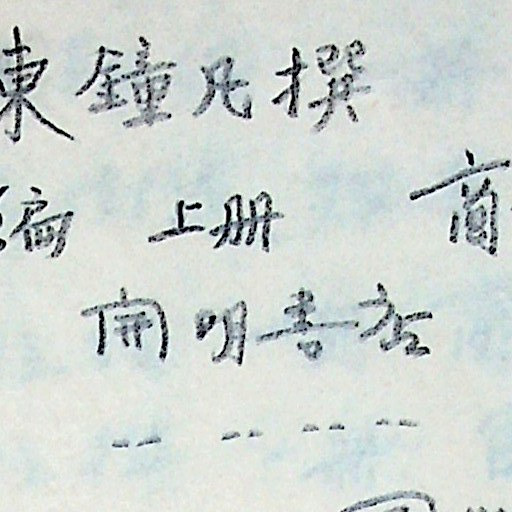 陳鐘凡撰
編 上册 商
開明書店